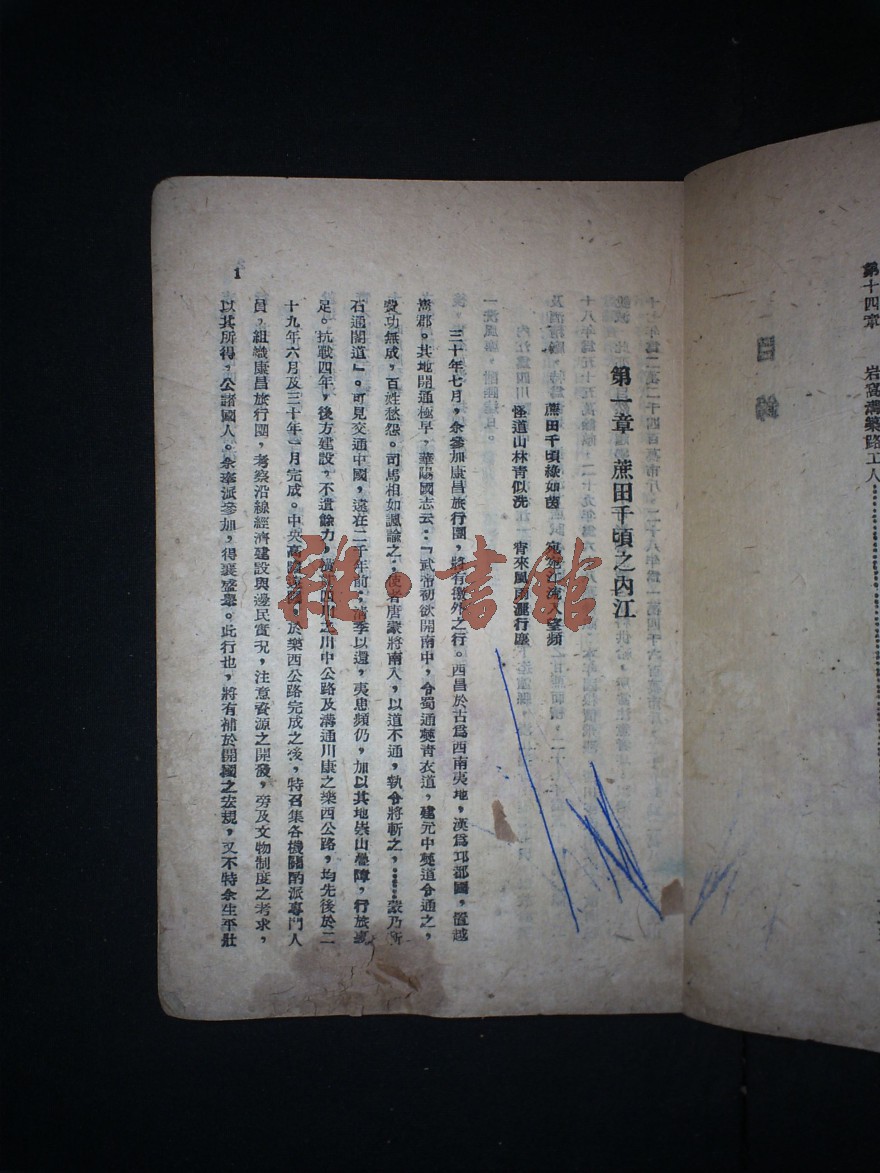 第十四章　岩窩溝築路工人
目錄
第一章　蔗田千頃之內江
蔗田千頃綠如茵　宛宛江流入望頻
怪道山林青似洗　宵來風雨灑行塵
三十年七月，余參加康昌旅行團，將有徼外之行。西昌於古爲西南夷地，漢爲邛都國，置越
嶲郡。其地開通極早，華陽國志云：「武帝初欲開南中，令蜀通僰青衣道，建元中僰道令通之，
費功無成，百姓愁怨。司馬相如諷諭之；使者唐蒙將南入，以道不通，執令將斬之，……蒙乃斬
石通閣道」。可見交通中國，遠在二千年前；清季以還，夷患頻仍，加以其地崇山疊障，行旅裹
足。抗戰四年，後方建設，不遺餘力，四川之川中公路及溝通川康之樂西公路，均先後於二
十九年六月及三十年一月完成。中央高，於樂西公路完成之後，特召集各機關酌派專門人
員，組織康昌旅行團，考察沿線經濟建設與邊民實況，注意資源之開發，旁及文物制度之考求，
以其所得，公諸國人。余奉派參加，得襄盛舉。此行也，將有補於開國之宏規，又不特余生平壯
1
雜·書館